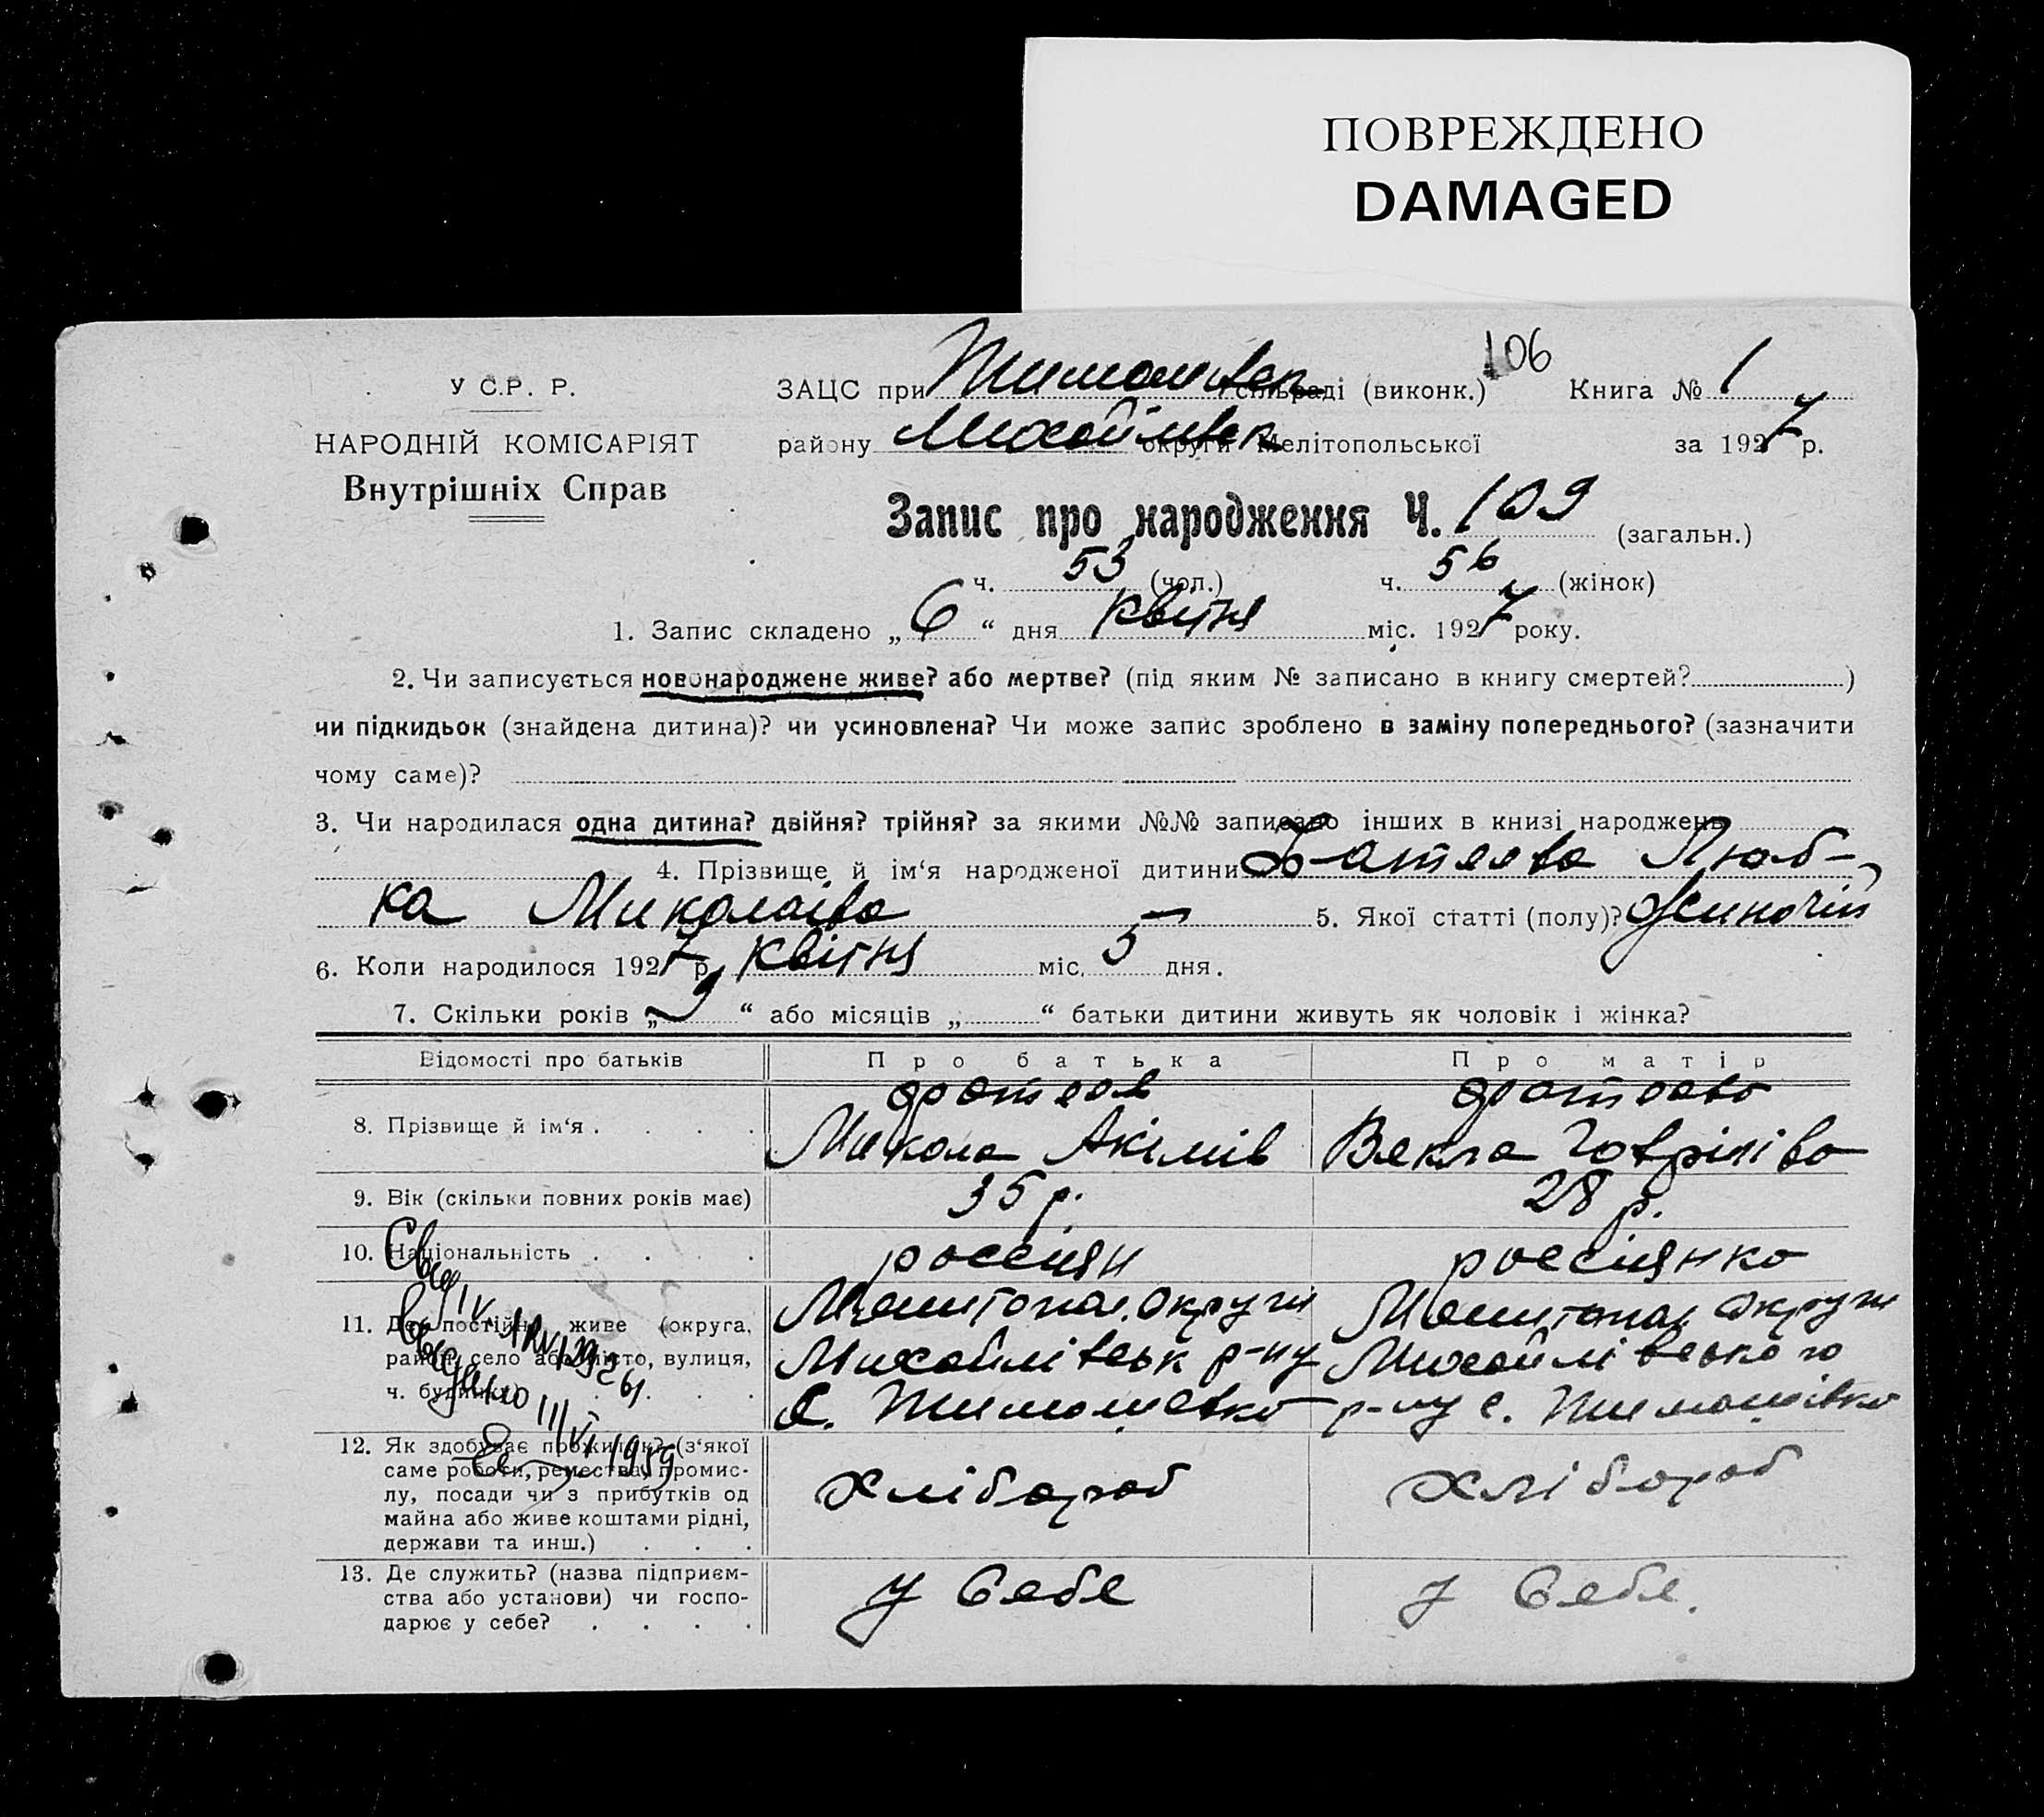 ПОВРЕЖДЕНО
DAMAGED
106
У С.Р. Р.
ЗАЦС при Тимошівск сільраді (виконк.) Книга № 1
НАРОДНІЙ КОМІСАРІЯТ
району Михайлівск округи Мелітопольської за 1927 р.
Внутрішніх Справ
Запис про народження Ч. 109 (загальн.)
ч. 53 (чол.) ч. 56 (жінок)
1. Запис складено „ 6 “ дня квітня міс. 1927 року.
2. Чи записується новонароджене живе? або мертве? (під яким № записано в книгу смертей? )
чи підкидьок (знайдена дитина)? чи усиновлена? Чи може запис зроблено в заміну попереднього? (зазначити
чому саме)?
3. Чи народилася одна дитина? двійня? трійня? за якими №№ записано інших в книзі народжень
4. Прізвище й ім‘я народженої дитини Люб-
ка Миколаіва 5. Якої статті (полу)? Жиночій
6. Коли народилося 1927 р. квітня міс. 5 дня.
7. Скільки років „ 9 “ або місяців „ “ батьки дитини живуть як чоловік і жінка?
Відомості про батьків Про батька Про матір
8. Прізвище й ім‘я . . . .
Микола Акімів Векла Говріліва
9. Вік (скільки повних років має) 35 р. 28 р.
10. Національність . . . россіян россіянка
11. Де постійно живе (округа, Мелитопол. округи Мелитопол округи
район, село або місто, вулиця, Михайлівськ р-ну Михайлівського
ч. будинку) с. Тимошевка р-ну с. Тимошівка
III/VI 1959
12. Як здобуває прожиток? (з‘якої
саме роботи, ремества, промис-
лу, посади чи з прибутків од хлібороб хлібороб
майна або живе коштами рідні,
держави та инш.) . . .
13. Де служить? (назва підприєм-
ства або установи) чи госпо- у себе у себе.
дарює у себе? . . . .